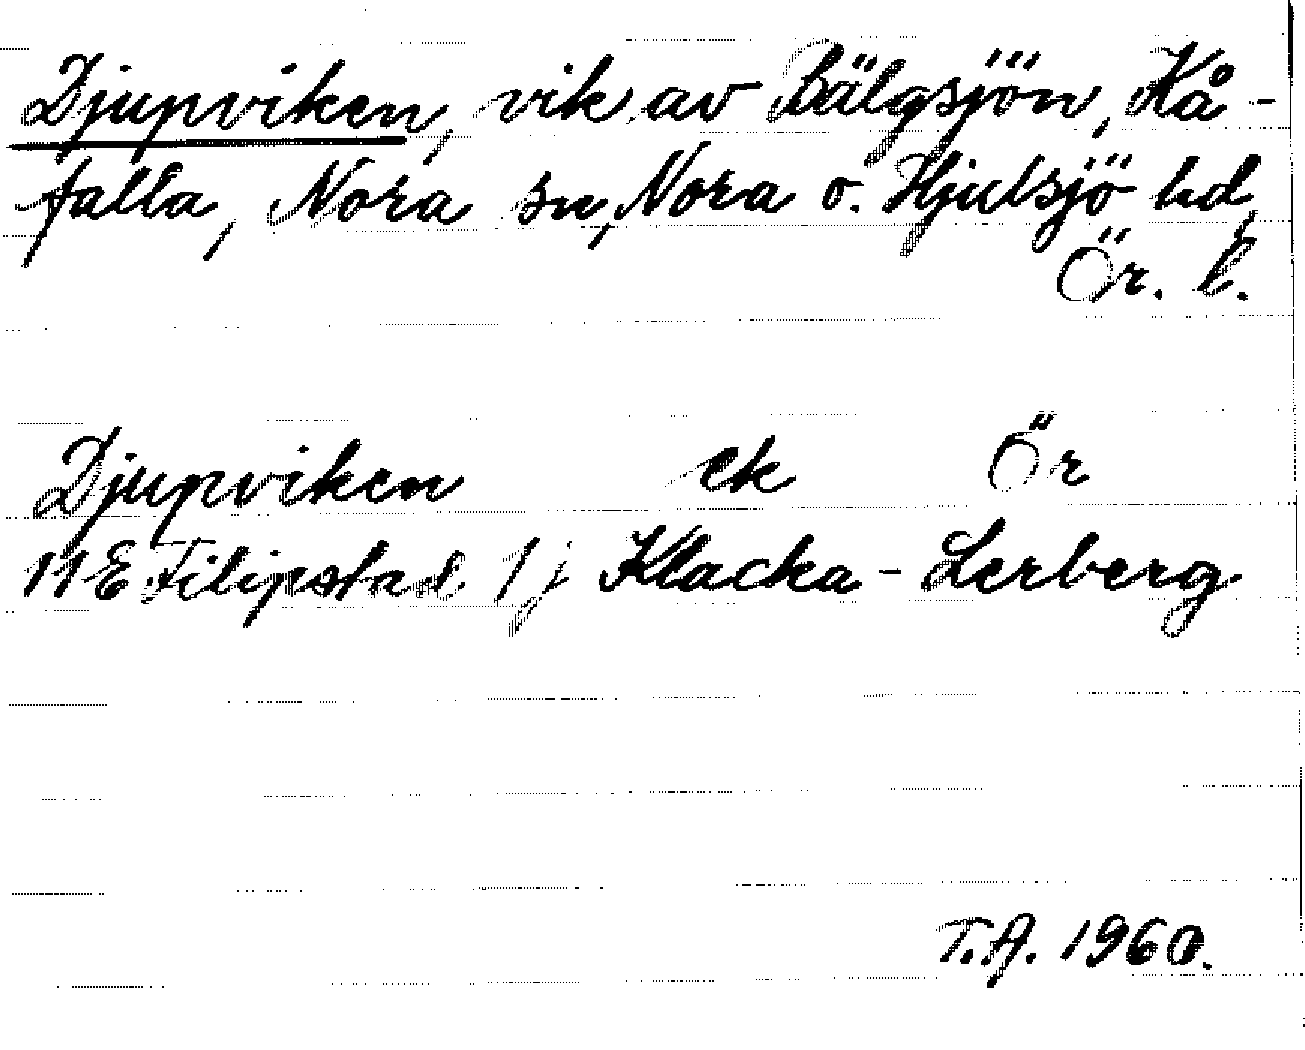 Djupviken, vik av Bälgsjön, Kå-
falla, Nora sn, Nora o. Hjulsjö hd,
Ör. l.
Djupviken ek Ör
11E Filipstad 1j Klacka-Lerberg
T.A. 1960.